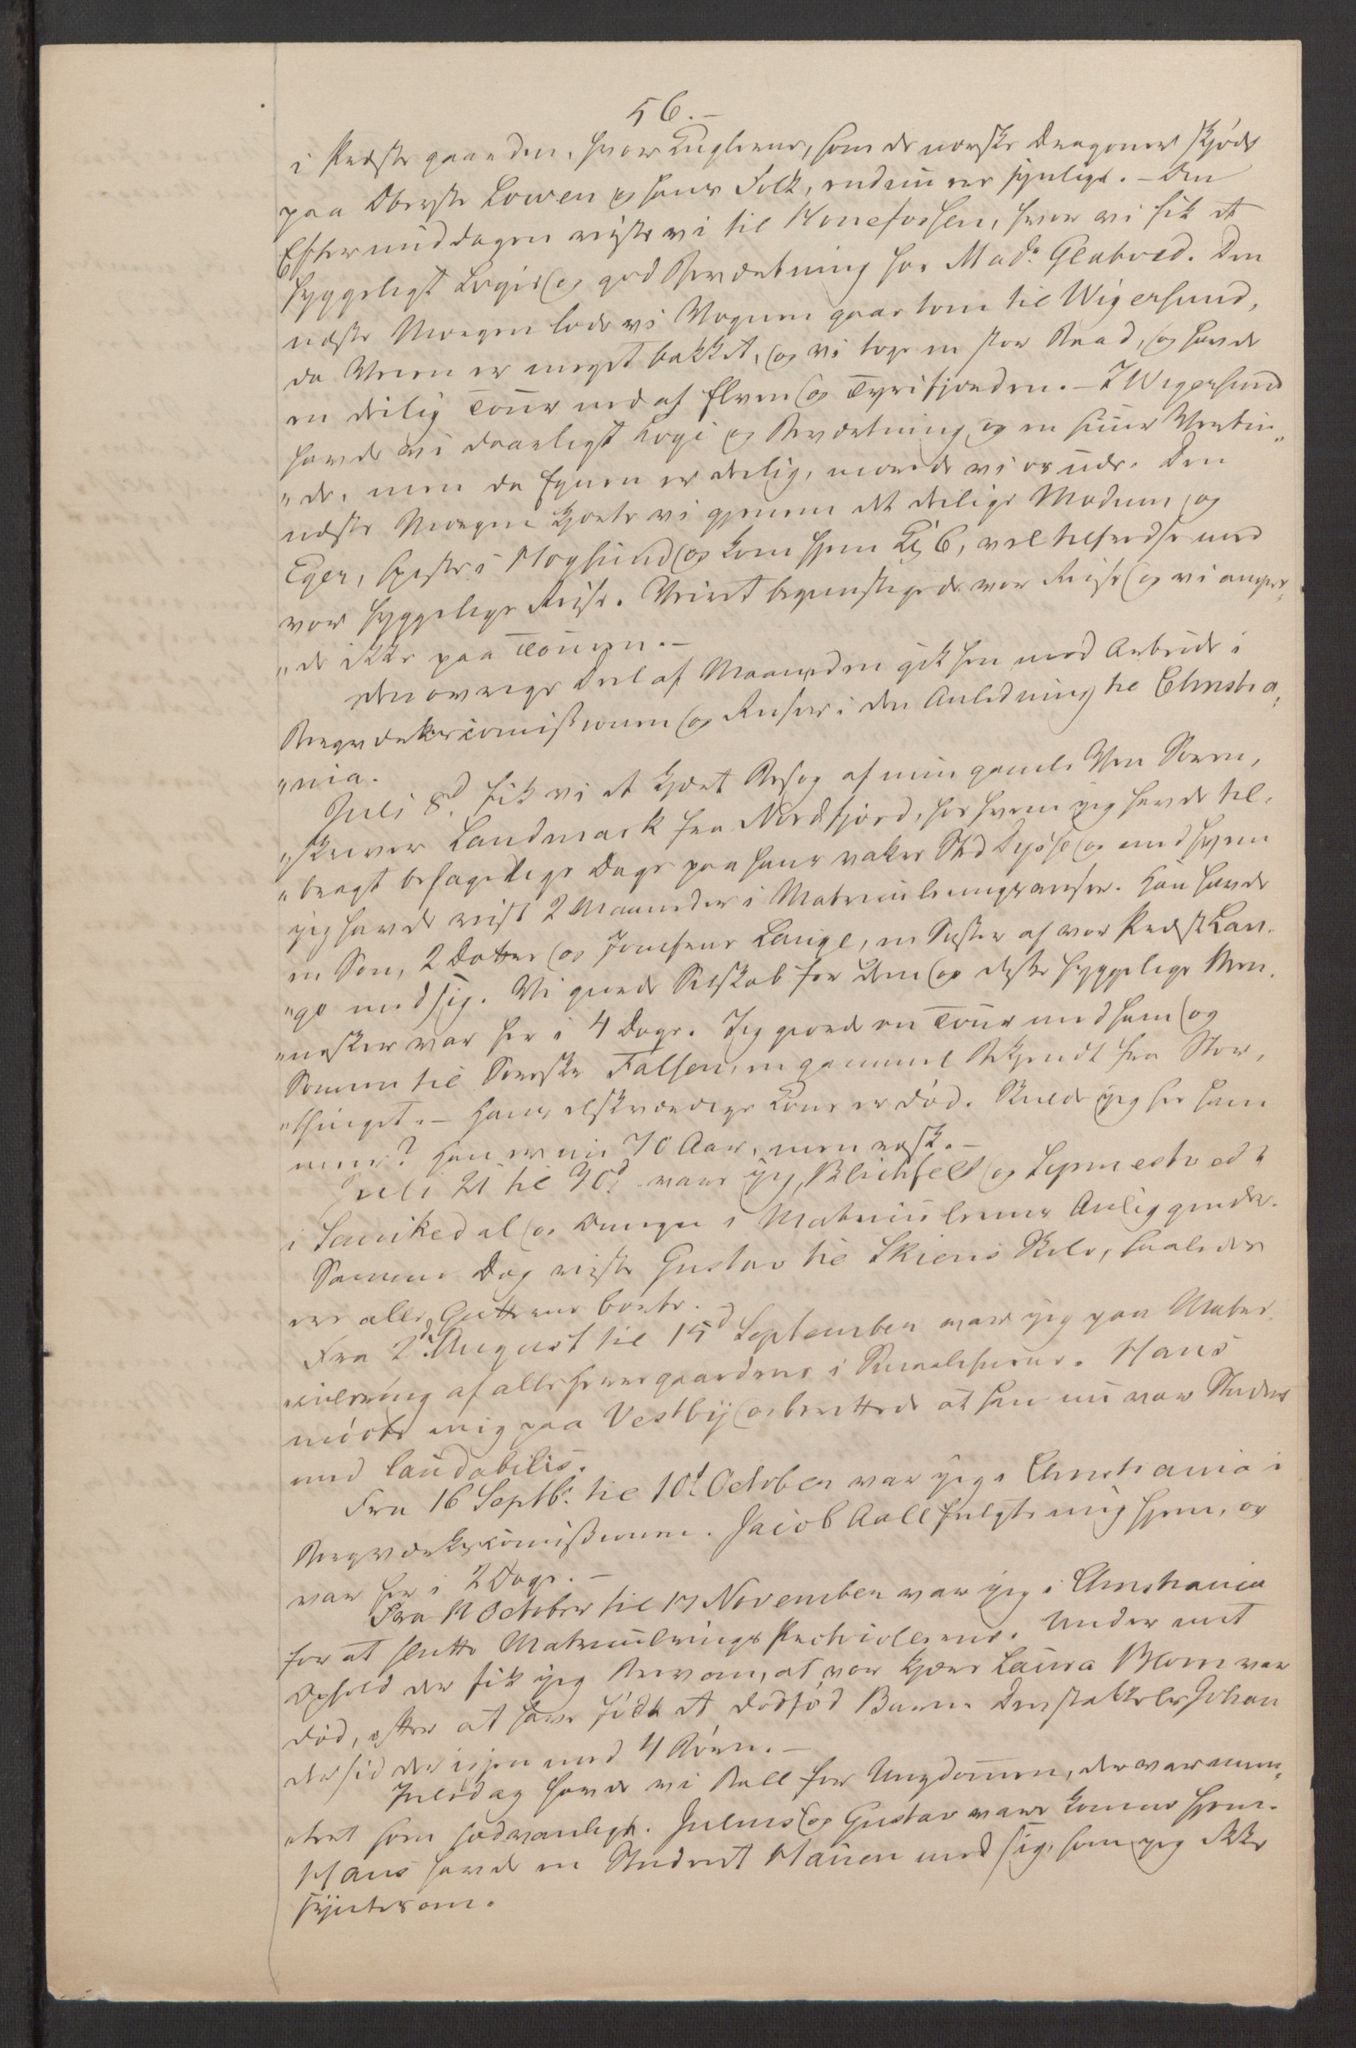 56.-
i Præstegaarden, hvor Kuglerne, som de norske Dragoner skjød
paa Oberste Lowen og hans Folk, endnu er synlige. - Om
Eftermiddagen reiste vi til Hønefossen, hvor vi fik et
hyggeligt Logie og god Bevertning hos Mad: Glatved. Den
næste Morgen lode vi Vognen gaae tom til Wigersund,
da Veien er meget bakket, og vi toge en stor Baad, og havde
en deilig Tour ned af Elven og Tyrifjorden. - I Wigersund
havde vi daarligt Logi og Bevertning og en suur Vertin„
„de, men da Egnen er deilig, morede vi os ude. Den
næste Morgen kjørte vi gjennem det deilige Modum og
Eger, spiste i Hogsund og kom hjem Kl 6, vel tilfredse med
vor hyggelige Reise. Veiret begunstigede vor Reise og vi angre„
„de ikke paa Touren. -
Den øvrige Deel af Maaneden gik hen med Arbeide i
Bergværkscomissionen og Reiser i den Anledning til Christia„
„nia.
Juli 8d fik vi et kjært Besøg af min gamle Ven Soren„
„skriver Landmark fra Nordfjord, hos hvem jeg havde til„
„bragt behagelige Dage paa hans vakre Sted og med hvem
jeg havde reist 2 Maaneder i Matriculeringsreiser. Han havde
en Søn, 2 Døttre og Jomfrue Lange, en Søster af vor Præst Lan„
„ge med sig. Vi gjorde Selskab for dem og disse hyggelige Men„
„nesker var her i 4 Dage. Jeg gjorde en Tour med ham og
Sønnen til Sorenskr Falsen, en gammel Bekjendt fra Stor„
„thinget. - Hans elskværdige Kone er død. Skulde jeg see ham
mere? Han er nu 70 Aar, men rask. -
Juli 21 til 30d. vare jeg, Blichfeldt og
i Sannikedal og Drangedal i Matriculerings Anliggender.
Samme Dag reiste Gustav til Skiens Skole, saaledes
ere alle Gutterne borte.
Fra 2d August til 15d September var jeg paa Matri„
„culering af alle Herregaardene i Smaalehnene. Hans
mødte mig paa Vestby og berettede at han nu var Student
med laudabilis.
Fra 16 Septb: til 10d October var jeg i Christiania i
Bergværkscomissionen. Jacob Aall fulgte mig hjem, og
var her i 2 Dage. -
Fra 11 October til 17 November var jeg i Christiania
for at slutte Matriculerings Protocollerne. Under mit
Ophold der fik jeg Brev om, at vor kjære Laura Blom var
død, efter at have født et dødfød Barn. Den stakkels Johan
der sid der igjen med 4 Børn. -
Juledag havde vi Ball for Ungdommen, der var mun„
„tert som sædvanligt. Julius og Gustav vare komne hjem.
Hans havde en Student Hauen med sig, som jeg ikke
syntes om.